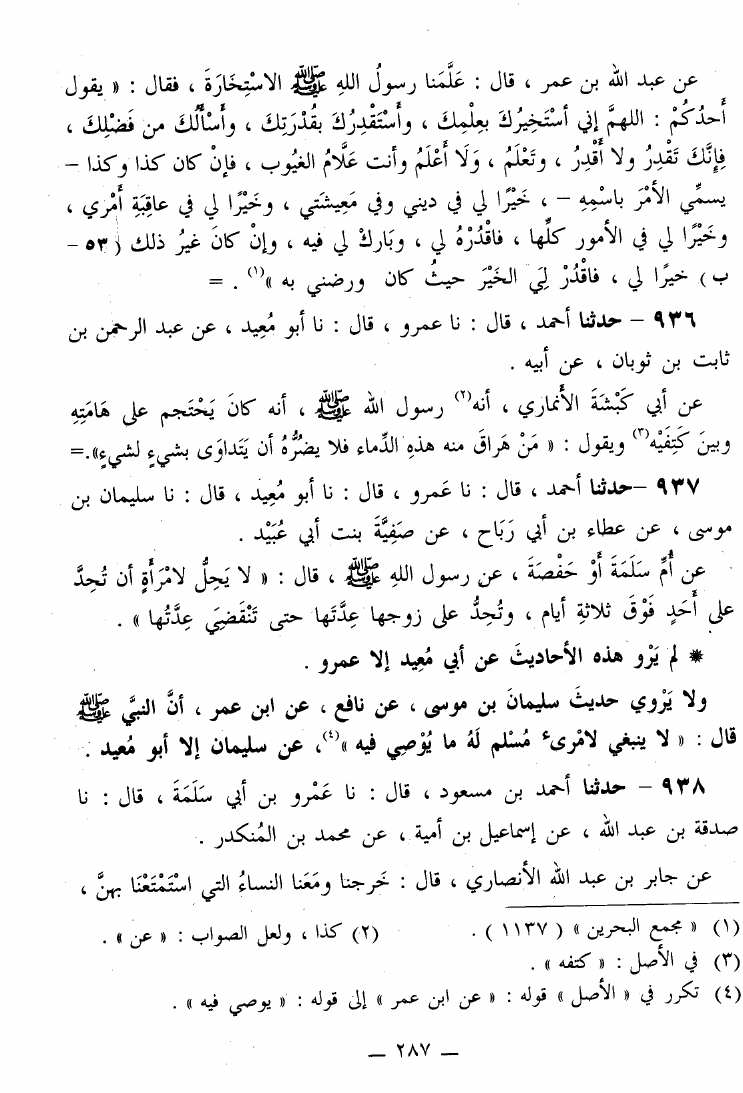 عن عبد الله بن عمر ، قال : عَلَّمَنا رسولُ اللهِ ﷺ الاسْتِخَارَةَ ، فقال : « يقول
أَحدُكُمْ : اللهمَّ إني أسْتَخِيرُكَ بعِلْمِكَ ، وأَسْتَقْدِرُكَ بقُدْرَتِكَ ، وأَسْأَلُكَ من فَضْلِكَ ،
فإِنَّكَ تَقْدِرُ ولا أَقْدِرُ ، وتَعْلَمُ ، وَلَا أَعْلَمُ وأنت عَلَّامُ الغيُوب ، فإنْ كان كذا وكذا –
يسمِّي الأمْرَ باسْمِهِ – ، خَيْرًا لي في ديني وفي مَعِيشَتي ، وخَيْرًا لي في عاقِبَةِ أَمْري ،
وخَيْرًا لي في الأمور كلِّها ، فاقْدُرْهُ لي ، وبَاركْ لي فيه ، وإنْ كانَ غيرُ ذلك ( ٥٣ –
ب ) خيرًا لي ، فاقْدُرْ لِيَ الخَيْرَ حيثُ كان ورضني به »(١) . =
٩٣٦ – حدثنا أحمد ، قال : نا عمرو ، قال : نا أبو مُعِيد ، عن عبد الرحمن بن
ثابت بن ثوبان ، عن أبيه .
عن أبي كَبْشَةَ الأنماري ، أنه(٢) رسول الله ﷺ ، أنه كانَ يَحْتَجم على هَامَتِهِ
وبينَ كَتِفَيْه(٣) ويقول : « مَنْ هَراقَ منه هذهِ الدِّماء فلا يضُرُّهُ أن يَتَداوَى بشيءٍ لشيءٍ».=
٩٣٧ –حدثنا أحمد ، قال : نا عَمرو ، قال : نا أبو مُعِيد ، قال : نا سليمان بن
موسى ، عن عطاء بن أبي رَبَاح ، عن صَفِيَّةَ بنت أبي عُبَيْد .
عن أُمِّ سَلَمَةَ أَوْ حَفْصَةَ ، عن رسول اللهِ ﷺ ، قال : « لا يَحِلُّ لامْرَأَةٍ أن تُحِدَّ
على أَحَدٍ فَوْقَ ثلاثةِ أيام ، وتُحِدُّ على زوجها عِدَّتَها حتى تَنْقَضِيَ عِدَّتُها » .
* لم يَرْوِ هذه الأحاديثَ عن أبي مُعِيد إلا عمرو .
ولا يَرْوي حديثَ سليمانَ بن موسى ، عن نافع ، عن ابن عمر ، أنَّ النبيَّ ﷺ
قال : « لا ينبغي لامْرىء مُسْلم لَهُ ما يُوْصِي فيه »(٤)، عن سليمان إلا أبو مُعيد .
٩٣٨ – حدثنا أحمد بن مسعود ، قال : نا عَمْرو بن أبي سَلَمَةَ ، قال : نا
صدقة بن عبد الله ، عن إسماعيل بن أمية ، عن محمد بن المُنكدر .
عن جابر بن عبد الله الأنصاري ، قال : خَرجنا ومَعَنا النساءُ التي اسْتَمْتَعْنَا بهنَّ ،
(١) « مجمع البحرين » ( ١١٣٧ ) . (٢) كذا ، ولعل الصواب : « عن » .
(٣) في الأصل : « كتفه » .
(٤) تكرر في « الأصل » قوله : « عن ابن عمر » إلى قوله : « يوصي فيه » .
– ٢٨٧ –